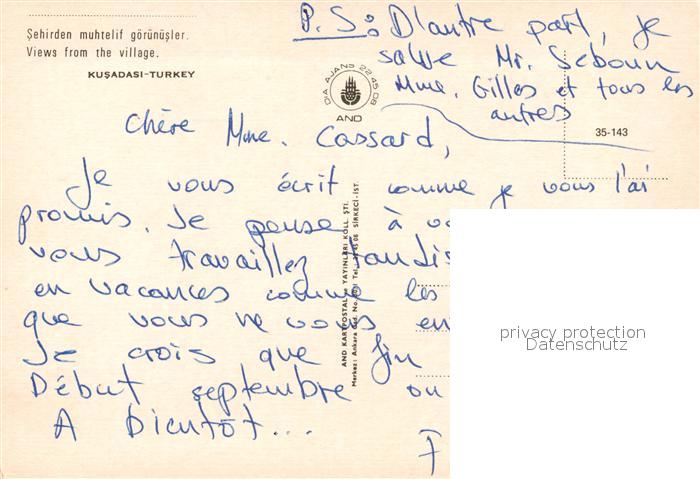 Şehirden muhtelif görünüşler.
Views from the village.
KUŞADASI-TURKEY
AND AJANS 22 45 08
AND
35-143
P.S: D'autre part, je
salue Mr. Seboun
Mme. Gilles et tous les
autres
Chère Mme. Cassard,
Je vous écrit comme je vous l'ai
promis. Je pense à
vous travaillez tandis
en vacances comme les
que vous ne vous en
Je crois que fin
Début septembre on
A Bientôt...
F
AND KARTPOSTAL ve YAYINLARI KOLL. ŞTİ.
Merkez: Ankara Cad. No. Tel. 22 45 08 SİRKECİ-İST.
privacy protection
Datenschutz